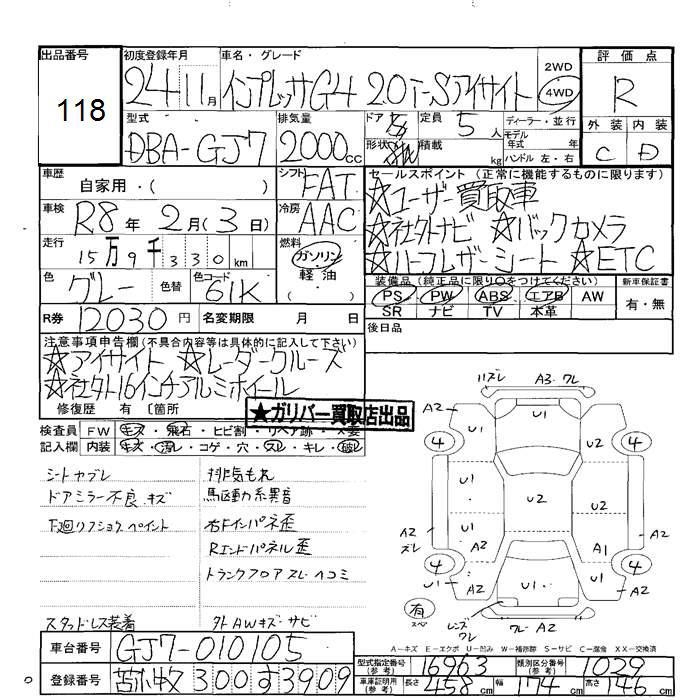 出品番号 118
初度登録年月 24年11月
車名・グレード インプレッサG4 2.0i-Sアイサイト
2WD
4WD
評価点 R
外装 C 内装 D
型式 DBA-GJ7
排気量 2000cc
ドア 定員 5人
形状 積載 kg
ディーラー・並行
モデル年式 年
ハンドル 左・右
車歴 自家用・( )
シフト FAT
車検 R8年2月(3日)
冷房 AAC
走行 15万9千330km
燃料 ガソリン 軽油
色 グレー 色替 色コード 61K
R券 12030円 名変期限 月 日
セールスポイント (正常に機能するものに限ります)
☆ユーザー買取車
☆社外ナビ ☆バックカメラ
☆ハーフレザーシート ☆ETC
装備品 (純正品に限り○をつけてください) 新車保証書
PS PW ABS エアB AW 有・無
SR ナビ TV 本革
後日品
注意事項申告欄(不具合内容等は具体的に記入して下さい)
☆アイサイト ☆レーダークルーズ
☆社外16インチアルミホイール
修復歴 有 〔箇所
★ガリバー買取店出品
検査員記入欄
FW キズ・飛石・ヒビ割・リペア跡・X要
内装 キズ・汚レ・コゲ・穴・スレ・キレ・破レ
シートヤブレ 排気もれ
ドアミラー不良.キズ 駆動系異音
下廻リフショク ペイント 右Fインパネ歪
Rエンドパネル歪
トランクフロアスレ・ヘコミ
スタッドレス装着 外AWキズ・サビ
ハズレ A3.ワレ
A2 U1 A2
4 U1 U2 4
U1 U2 U2
A2 ズレ U1 A2
A2 A1
4 U1 A2 U1. A2 4 A2
有 スペ
レンズワレ ワレ-A2
A-キズ E-エクボ U-凹ミ W-補修跡 S-サビ C-腐食 XX-交換済
車台番号 GJ7-010105
登録番号 苫小牧 300す3909
型式指定番号(参考) 16963 類別区分番号(参考) 1029
車庫証明用(参考) 長さ 458cm 幅 174cm 高さ 146cm